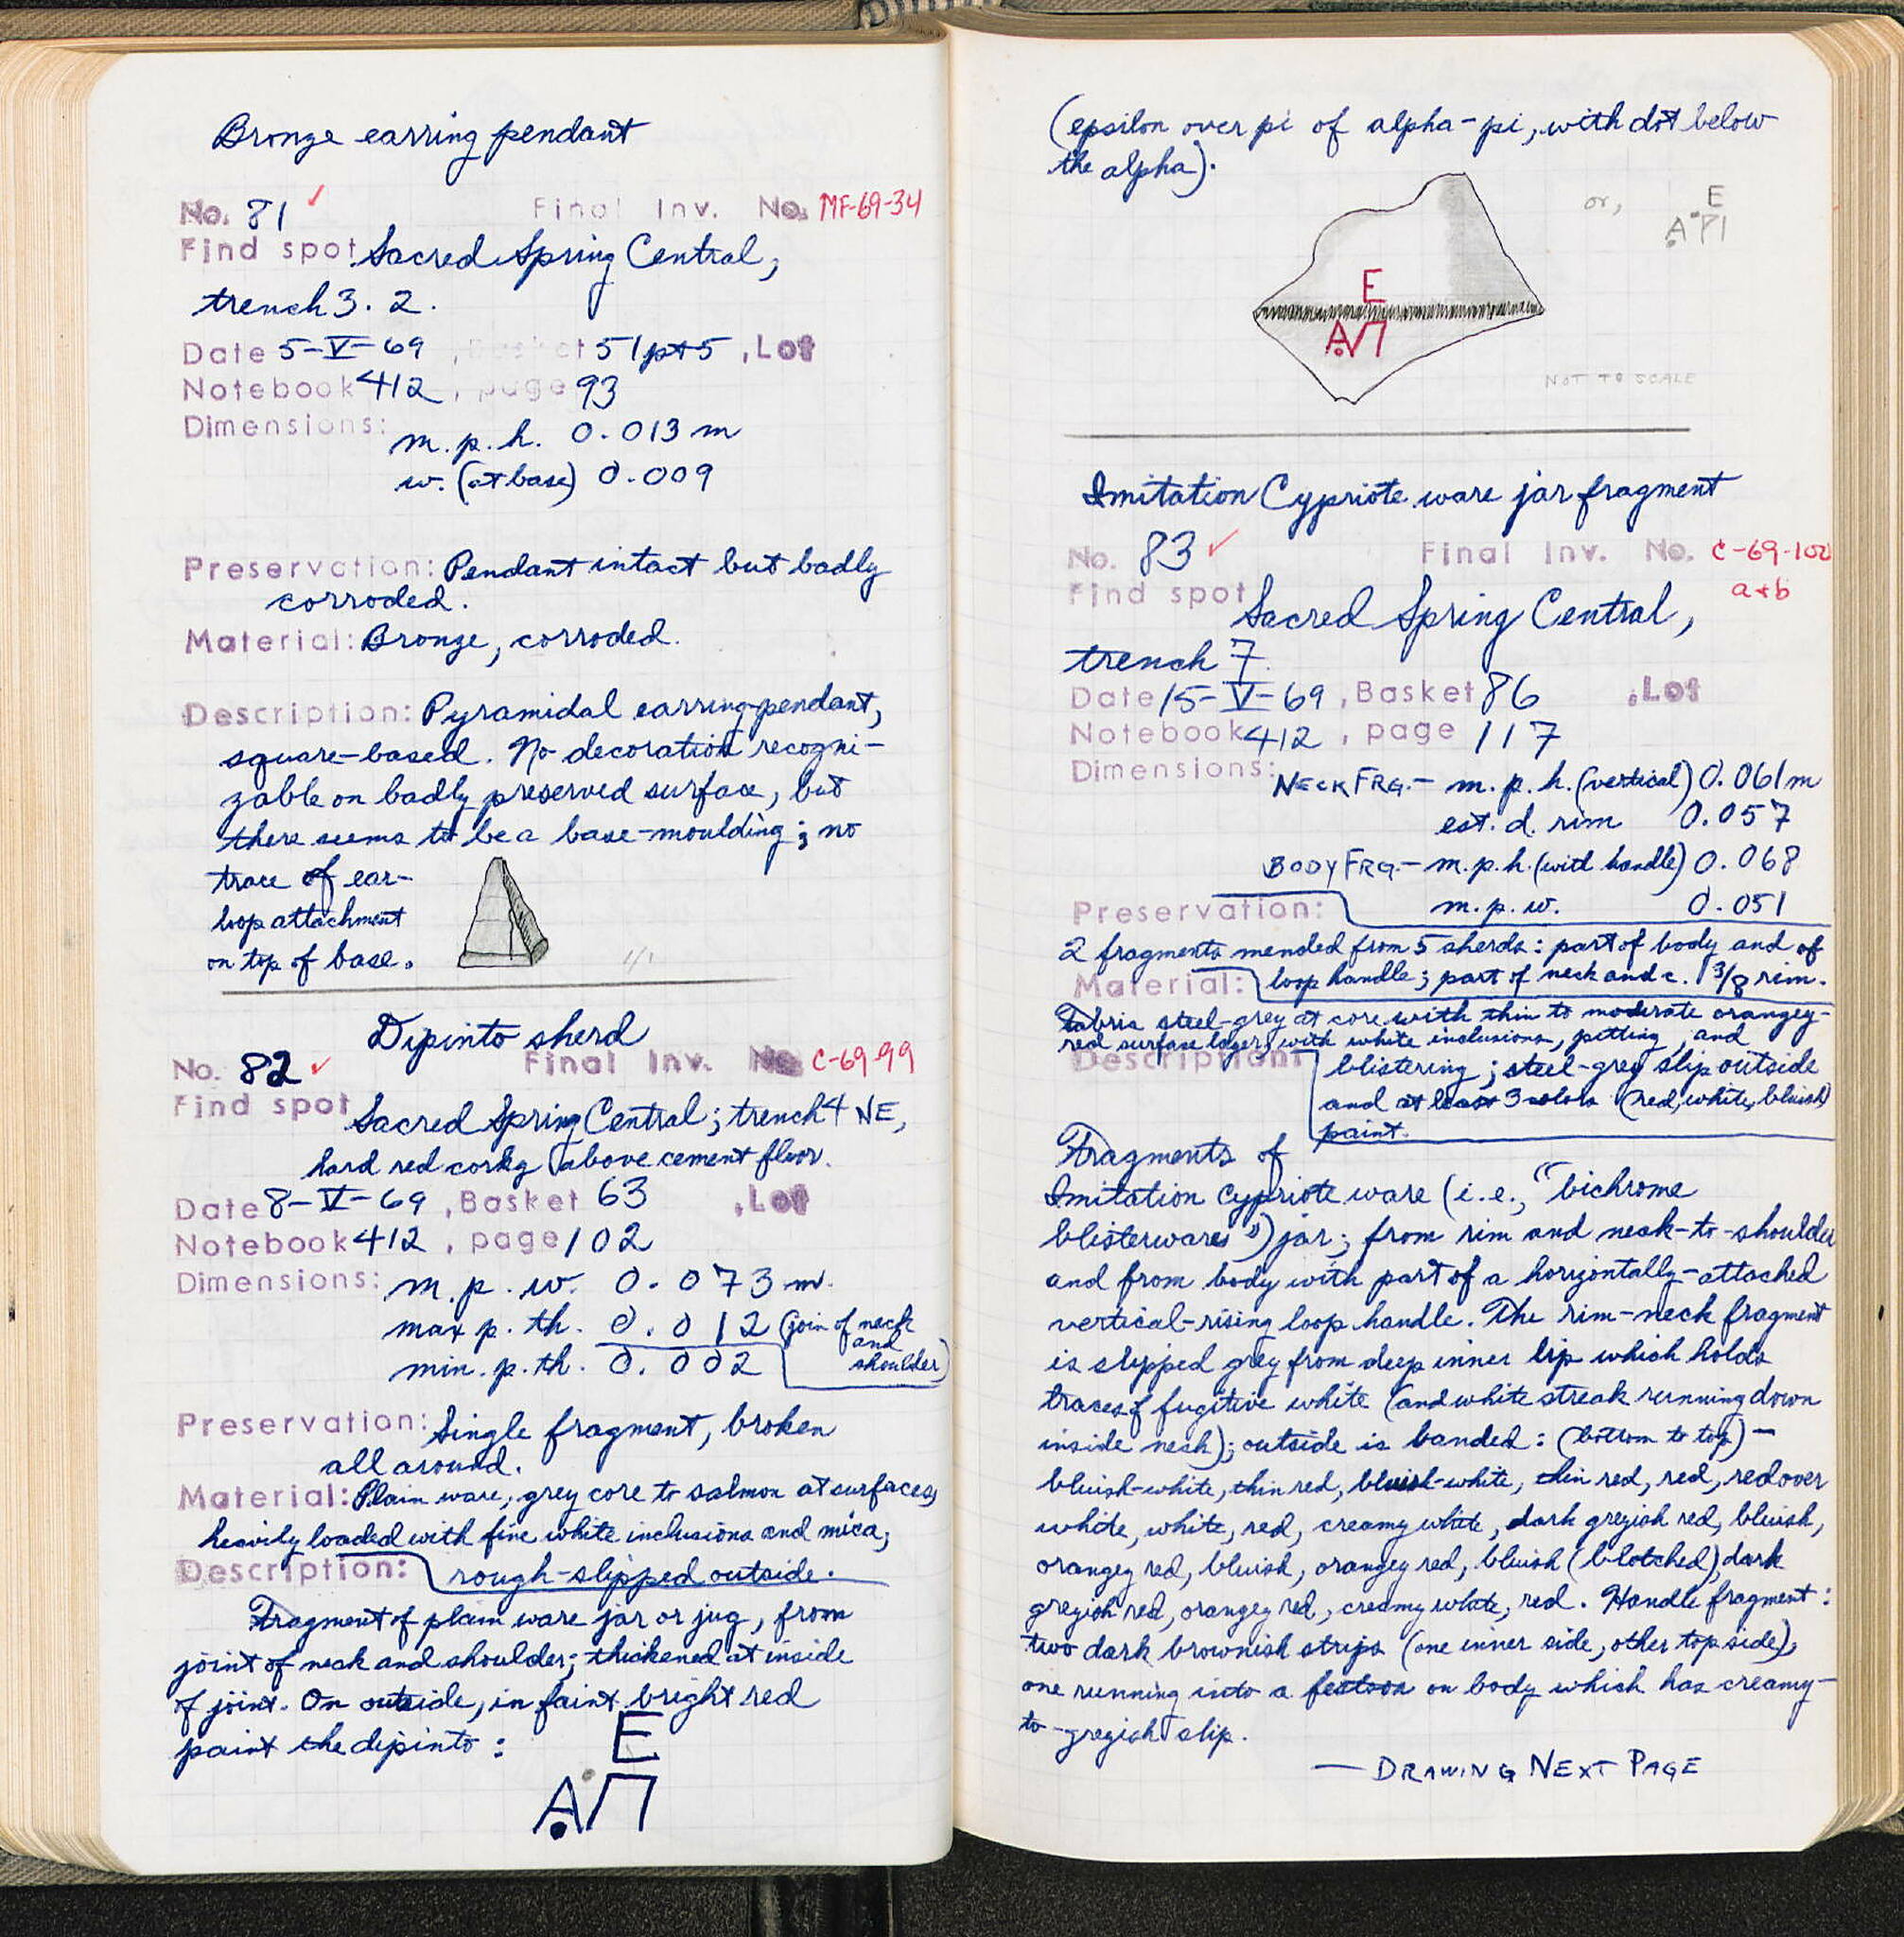 Bronze earring pendant
No. 81 ✓ Final Inv. No. MF-69-34
Find spot Sacred Spring Central,
trench 3. 2.
Date 5-V-69 , Basket 51 pt 5 , Lot
Notebook 412 , page 93
Dimensions: m. p. h. 0.013 m
w. (at base) 0.009
Preservation: Pendant intact but badly
corroded.
Material: Bronze, corroded.
Description: Pyramidal earring-pendant,
square-based. No decoration recogni-
zable on badly preserved surface, but
there seems to be a base-moulding; no
trace of ear-
loop attachment
on top of base.
1/1
Dipinto sherd
No. 82 ✓ Final Inv. No. C-69-99
Find spot Sacred Spring Central; trench 4 NE,
hard red corkg above cement floor.
Date 8-V-69 , Basket 63 , Lot
Notebook 412 , page 102
Dimensions: m. p. w. 0.073 m.
max p. th. 0.012 (join of neck
and
min. p. th. 0.002 shoulder)
Preservation: Single fragment, broken
all around.
Material: Plain ware, grey core to salmon at surfaces,
heavily loaded with fine white inclusions and mica,
Description: rough-slipped outside.
Fragment of plain ware jar or jug, from
joint of neck and shoulder; thickened at inside
of joint. On outside, in faint bright red
paint the dipinto: E
ΑΠ
(epsilon over pi of alpha-pi, with dot below
the alpha).
or, E
ΑΠ
E
ΑΠ
NOT TO SCALE
Imitation Cypriote ware jar fragment
No. 83 ✓ Final Inv. No. C-69-100
a+b
Find spot Sacred Spring Central,
trench 7.
Date 15-V-69 , Basket 86 , Lot
Notebook 412 , page 117
Dimensions: NECK FRG. – m. p. h. (vertical) 0.061 m
est. d. rim 0.057
BODY FRG. – m. p. h. (with handle) 0.068
Preservation: m. p. w. 0.051
2 fragments mended from 5 sherds: part of body and of
Material: loop handle; part of neck and c. 3/8 rim.
Fabric steel-grey at core with thin to moderate orangey-
red surface layer, with white inclusions, pitting, and
Description: blistering; steel-grey slip outside
and at least 3 colors (red, white, bluish)
paint.
Fragments of
Imitation Cypriote ware (i.e., "bichrome
blisterware") jar; from rim and neck-to-shoulder
and from body with part of a horizontally-attached
vertical-rising loop handle. The rim-neck fragment
is slipped grey from deep inner lip which holds
traces of fugitive white (and white streak running down
inside neck); outside is banded: (bottom to top) —
bluish-white, thin red, bluish-white, thin red, red, red over
white, white, red, creamy white, dark greyish red, bluish,
orangey red, bluish, orangey red, bluish (blotched), dark
greyish red, orangey red, creamy white, red. Handle fragment:
two dark brownish strips (one inner side, other top side),
one running into a festoon on body which has creamy-
to-greyish slip.
— DRAWING NEXT PAGE